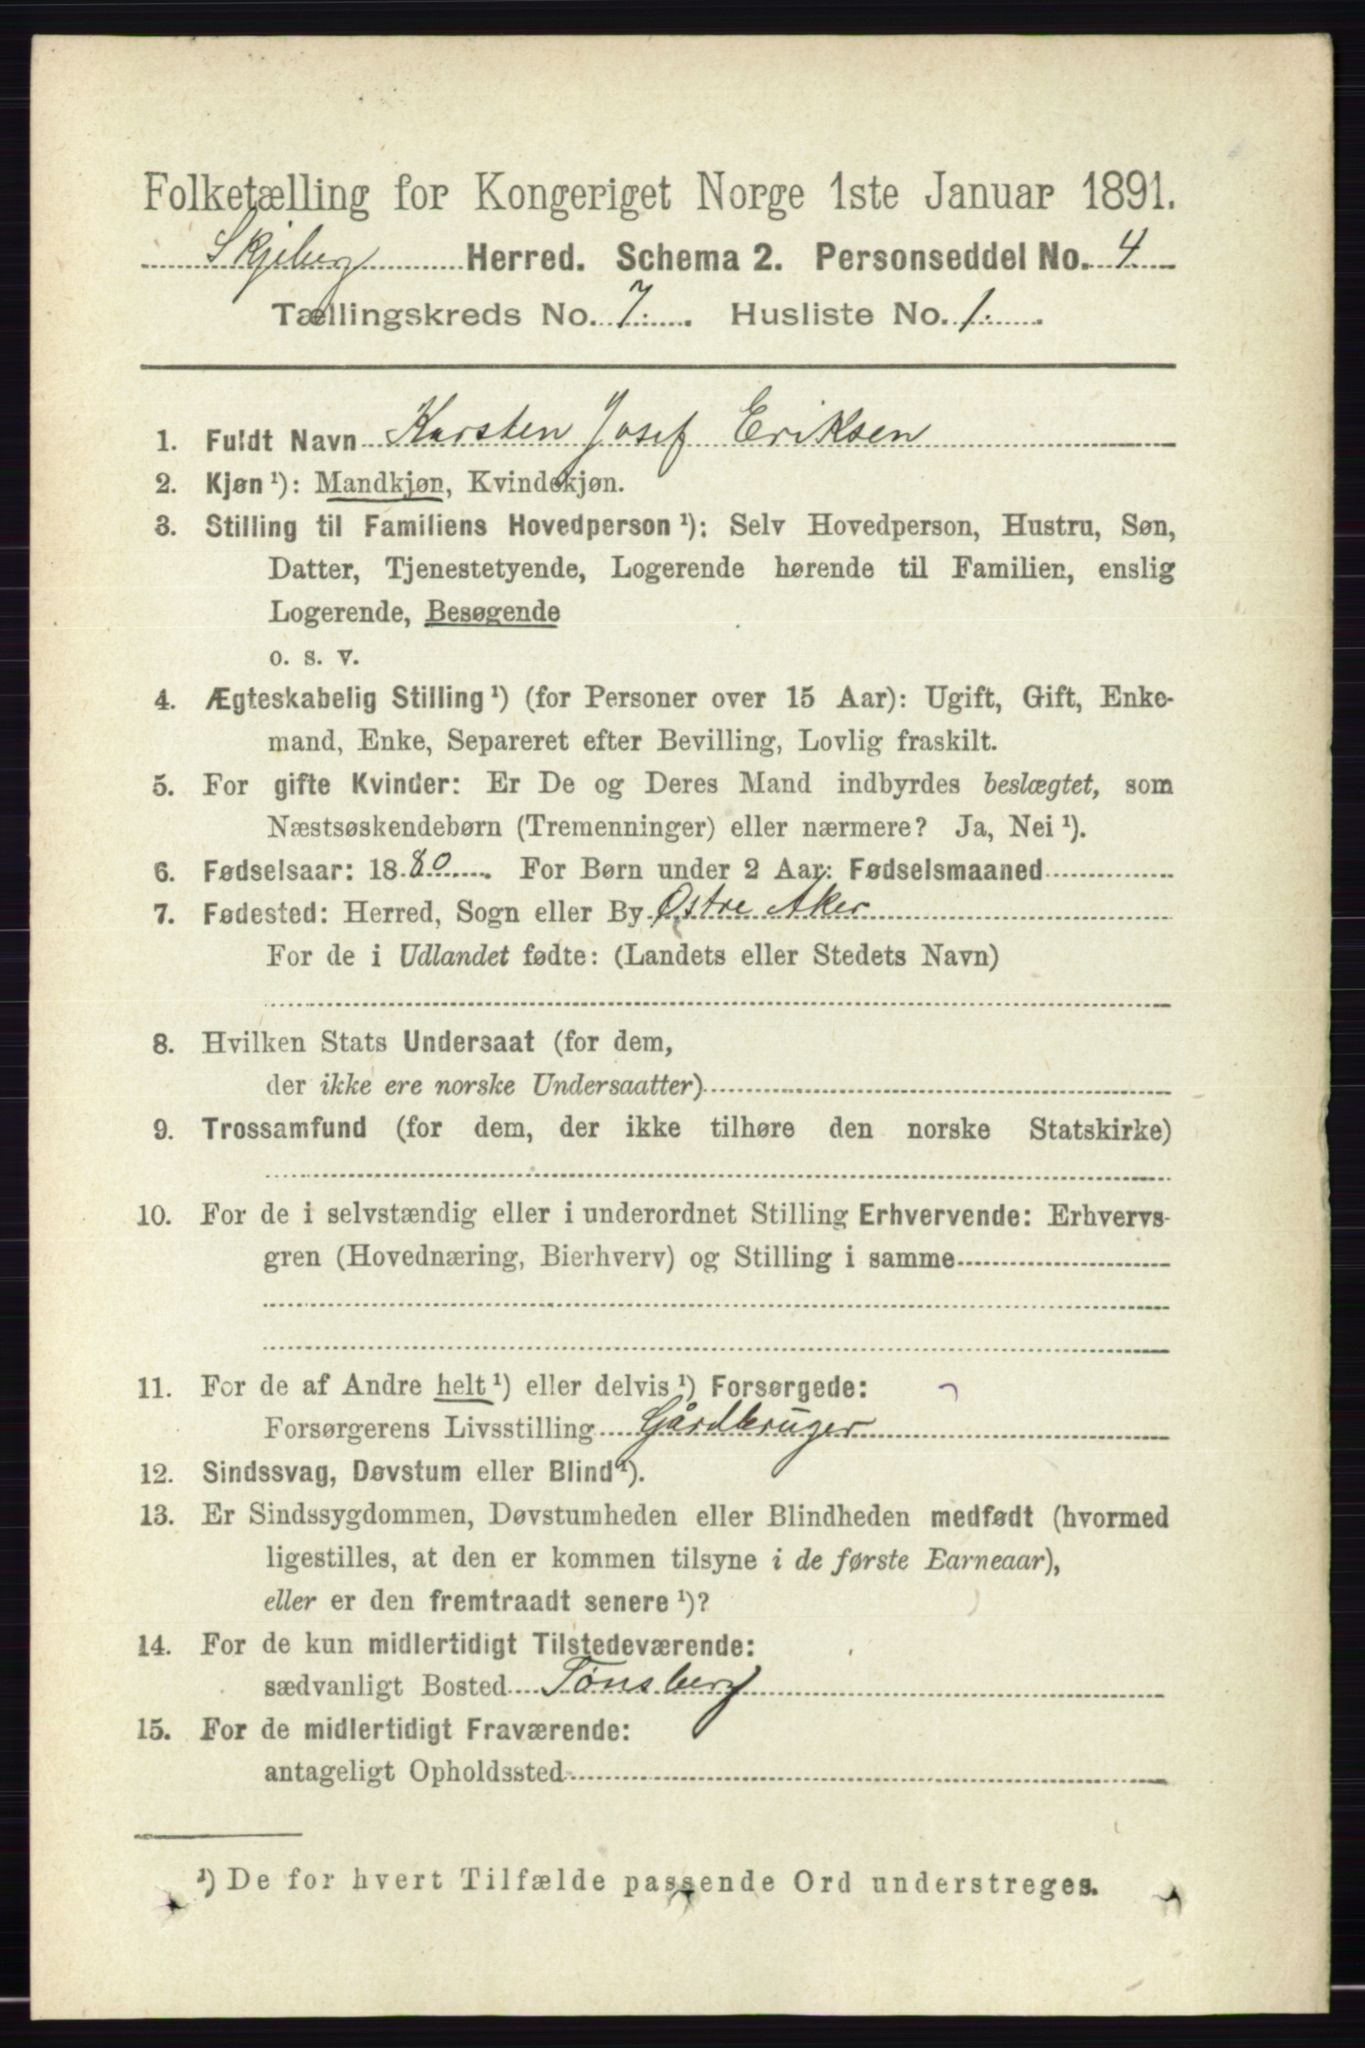 Folketælling for Kongeriget Norge 1ste Januar 1891.
Skjeberg Herred. Schema 2. Personseddel No. 4
Tællingskreds No. 7. Husliste No. 1.
1. Fuldt Navn Karsten Josef Eriksen
2. Kjøn ¹): Mandkjøn, Kvindekjøn.
3. Stilling til Familiens Hovedperson ¹): Selv Hovedperson, Hustru, Søn,
Datter, Tjenestetyende, Logerende hørende til Familien, enslig
Logerende, Besøgende
o. s. v.
4. Ægteskabelig Stilling ¹) (for Personer over 15 Aar): Ugift, Gift, Enke-
mand, Enke, Separeret efter Bevilling, Lovlig fraskilt.
5. For gifte Kvinder: Er De og Deres Mand indbyrdes beslægtet, som
Næstsøskendebørn (Tremenninger) eller nærmere? Ja, Nei ¹).
6. Fødselsaar: 1880. For Børn under 2 Aar: Fødselsmaaned
7. Fødested: Herred, Sogn eller By Østre Aker
For de i Udlandet fødte: (Landets eller Stedets Navn)
8. Hvilken Stats Undersaat (for dem,
der ikke ere norske Undersaatter)
9. Trossamfund (for dem, der ikke tilhøre den norske Statskirke)
10. For de i selvstændig eller i underordnet Stilling Erhvervende: Erhvervs-
gren (Hovednæring, Bierhverv) og Stilling i samme
11. For de af Andre helt ¹) eller delvis ¹) Forsørgede:
Forsørgerens Livsstilling Gårdbruger
12. Sindssvag, Døvstum eller Blind ¹).
13. Er Sindssygdommen, Døvstumheden eller Blindheden medfødt (hvormed
ligestilles, at den er kommen tilsyne i de første Barneaar),
eller er den fremtraadt senere ¹)?
14. For de kun midlertidigt Tilstedeværende:
sædvanligt Bosted Tønsberg
15. For de midlertidigt Fraværende:
antageligt Opholdssted
¹) De for hvert Tilfælde passende Ord understreges.